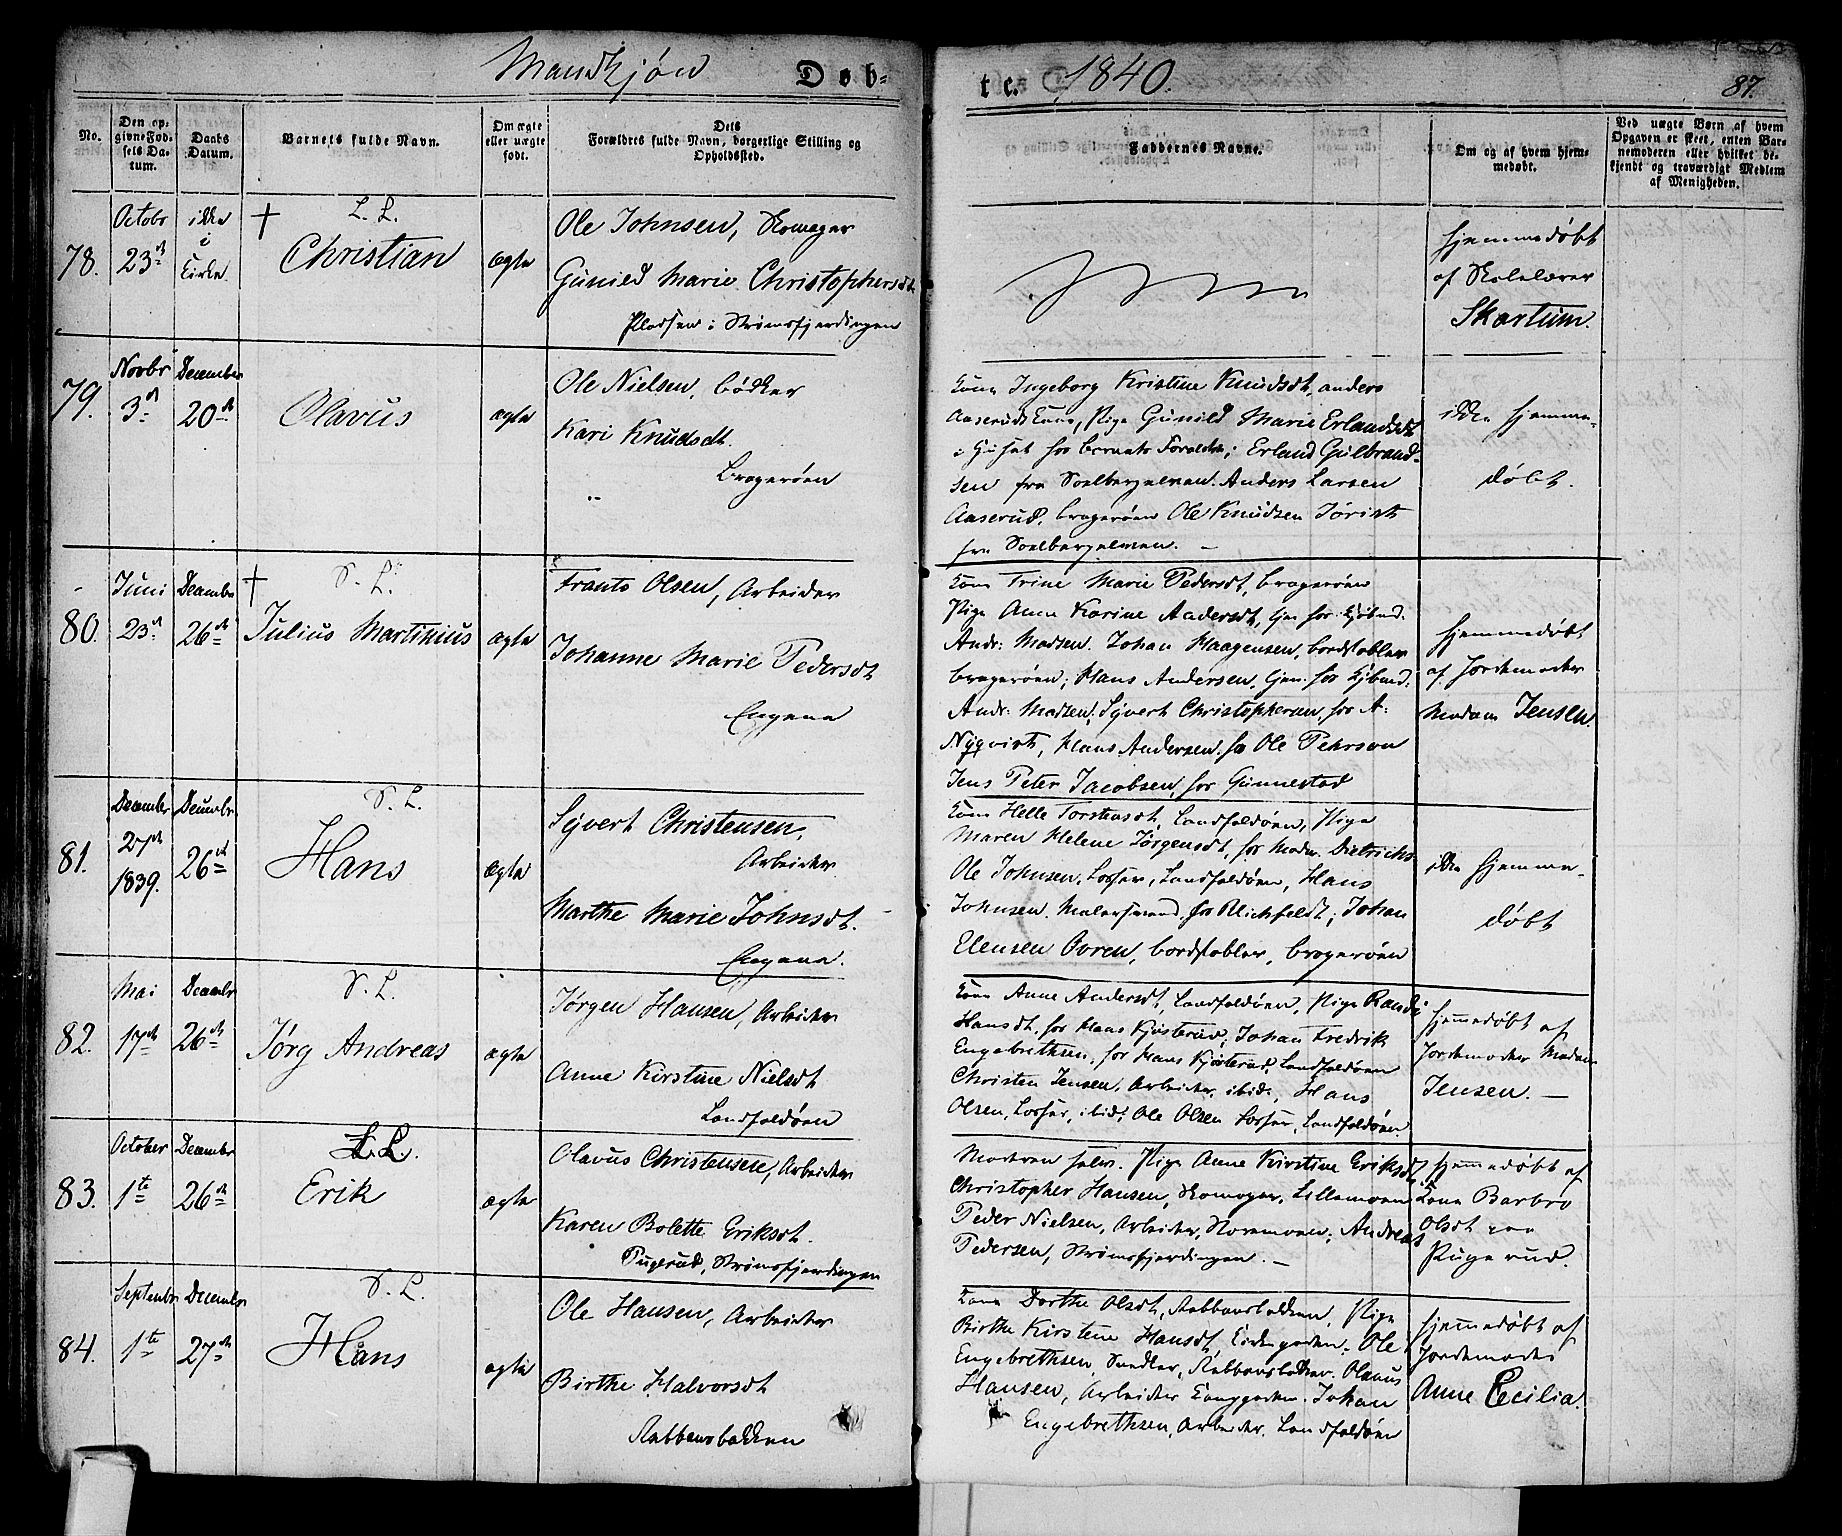 Mandkjøn Døb-
te. 1840.
87.
No.
Den op-
givne Fød-
sels Da-
tum.
Daabs
Datum.
Barnets fulde Navn.
Om ægte
eller uægte
født.
Dets
Forældres fulde Navn, borgerlige Stilling og
Opholdssted.
Faddernes Navne.
Om og af hvem hjem-
medøbt.
Ved uægte Børn af hvem
Opgaven er skeet, enten Bar-
nemoderen eller hvilket be-
kjendt og troværdigt Medlem
af Menigheden.
78.
Octobr
23de
ikke
i
Kirke
† L. L.
Christian
ægte
Ole Johnsen, Skomager
Gunild Marie Christophersdt
Pladsen i Strømsfjerdingen
hjemmedøbt
af Skolelærer
Skartum.
79.
Novbr
3de
December
20de
Olavus
ægte
Ole Nielsen, bødker
Kari Knudsdt.
Bragerøen
Kone Ingeborg Kristine Knudsdt, Anders
Aaseruds Kone, Pige Gunild Marie Erlandsdt
i Huset hos barnets Forældre; Erland Gulbrand-
sen fra Solbergelven. Anders Larsen
Aaserud, Bragerøen Ole Knudsen
fra Solbergelven. –
ikke hjemme-
døbt.
80.
Juni
23de
December
26de
† S. L.
Julius Martinius
ægte
Frants Olsen, Arbeider
Johanne Marie Pedersdt
Engene
Kone Trine Marie Pedersdt, Bragerøen
Pige Anne Karine Andersdt, tjen: for Kjøbmd.
Andr: Madsen. Johan Haagensen, bordstabler
Bragerøen; Hans Andersen, tjen: for Kjøbmd:
Andr: Madsen; Syvert Christophersen, for A:
Nyqvist, Hans Andersen, for Ole Pehrson
Jens Peter Jacobsen, for Gunnestad
hjemmedøbt
af Jordemoder
Madam Jensen.
81.
December
27de
1839.
December
26de
S. L.
Hans
ægte
Syvert Christensen,
Arbeider
Marthe Marie Johnsdt.
Engene.
Kone Helle Torstensdt, Landfaldøen, Pige
Maren Helene Jørgensdt, for Madm. Dietrichs
Ole Johnsen, Losser, Landfaldøen, Hans
Johnsen, Malersvend, for Blichfeldt; Johan
Elensen Ovren, bordstabler, Bragerøen
ikke hjemme-
døbt
82.
Mai
17de
December
26de
S. L.
Jørg Andreas
ægte
Jørgen Hansen, Arbeider
Anne Kirstine Nielsdt
Landfaldøen
Kone Anne Andersdt, Landfaldøen, Pige Randi
Hansdt, for Hans Kjøsterud, Johan Fredrik
Engebrethsen, for Hans Kjøsterud, Landfaldøen
Christen Jensen, Arbeider, ibid:, Hans
Olsen, Losser, ibid; Ole Olsen Losser, Landfaldøen.
hjemmedøbt af
Jordemoder Madam
Jensen. –
83.
October
1te
December
26de
L. L.
Erik
ægte
Olavus Christensen, Arbeider
Karen Bolette Eriksdt.
Pugerud, Strømsfjerdingen
Moderen selv. Pige Anne Kirstine Eriksdt,
Christopher Hansen, Skomager, Lillemoen
Peder Nielsen, Arbeider, Noremoen, Andreas
Pedersen, Strømsfjerdingen. –
hjemmedøbt af
Kone Barbro
Olsdt
Pugerud.
84.
Septembr
1te
December
27de
S. L.
Hans
ægte
Ole Hansen, Arbeider
Birthe Halvorsdt
Røbbensbakken
Kone Dorthe Olsdt, Røbbensbakken, Pige
Birthe Kirstine Hansdt, Ole
Engebrethsen, Røbbensbakken. Olavus
Hansen, Arbeider Johan
Engebrethsen, Arbeider, Landfaldøen
hjemmedøbt af
Jordemoder
Anne Cecilia.